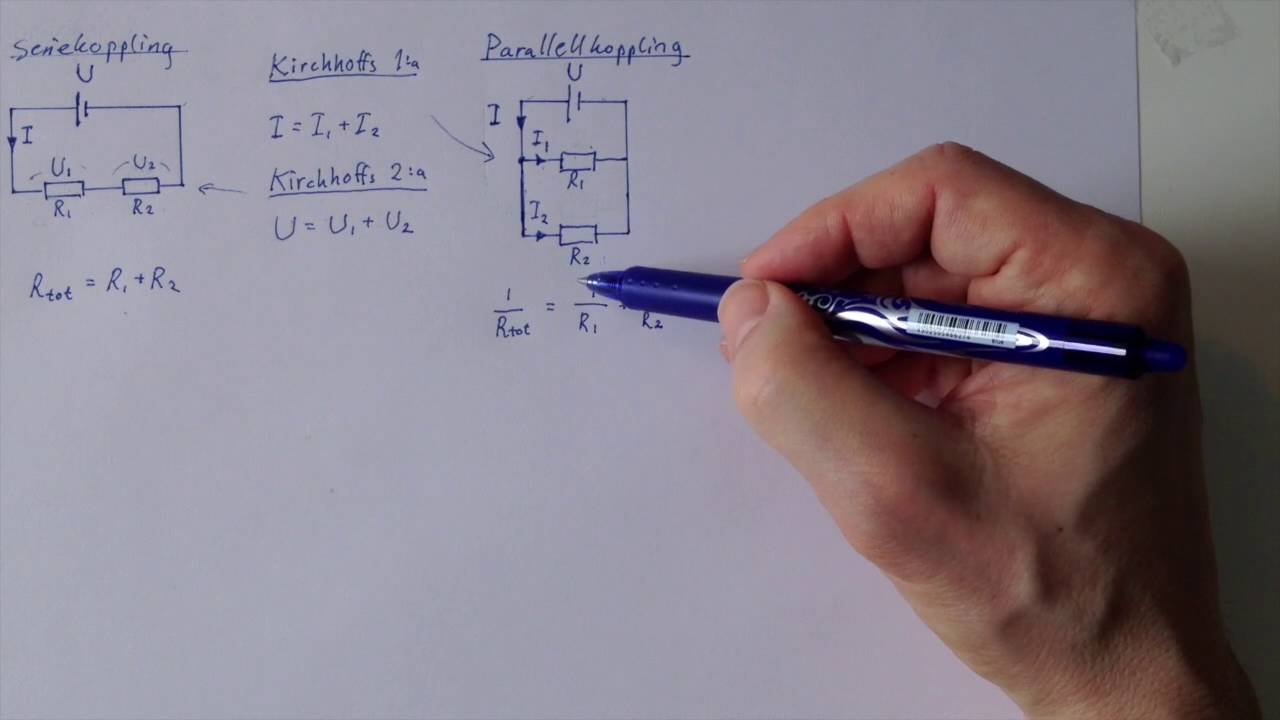 Seriekoppling
U
I
U₁ U₂
R₁ R₂
R_tot = R₁ + R₂
Kirchhoffs 1:a
I = I₁ + I₂
Kirchhoffs 2:a
U = U₁ + U₂
Parallellkoppling
U
I
I₁
R₁
I₂
R₂
1/R_tot = 1/R₁ + /R₂